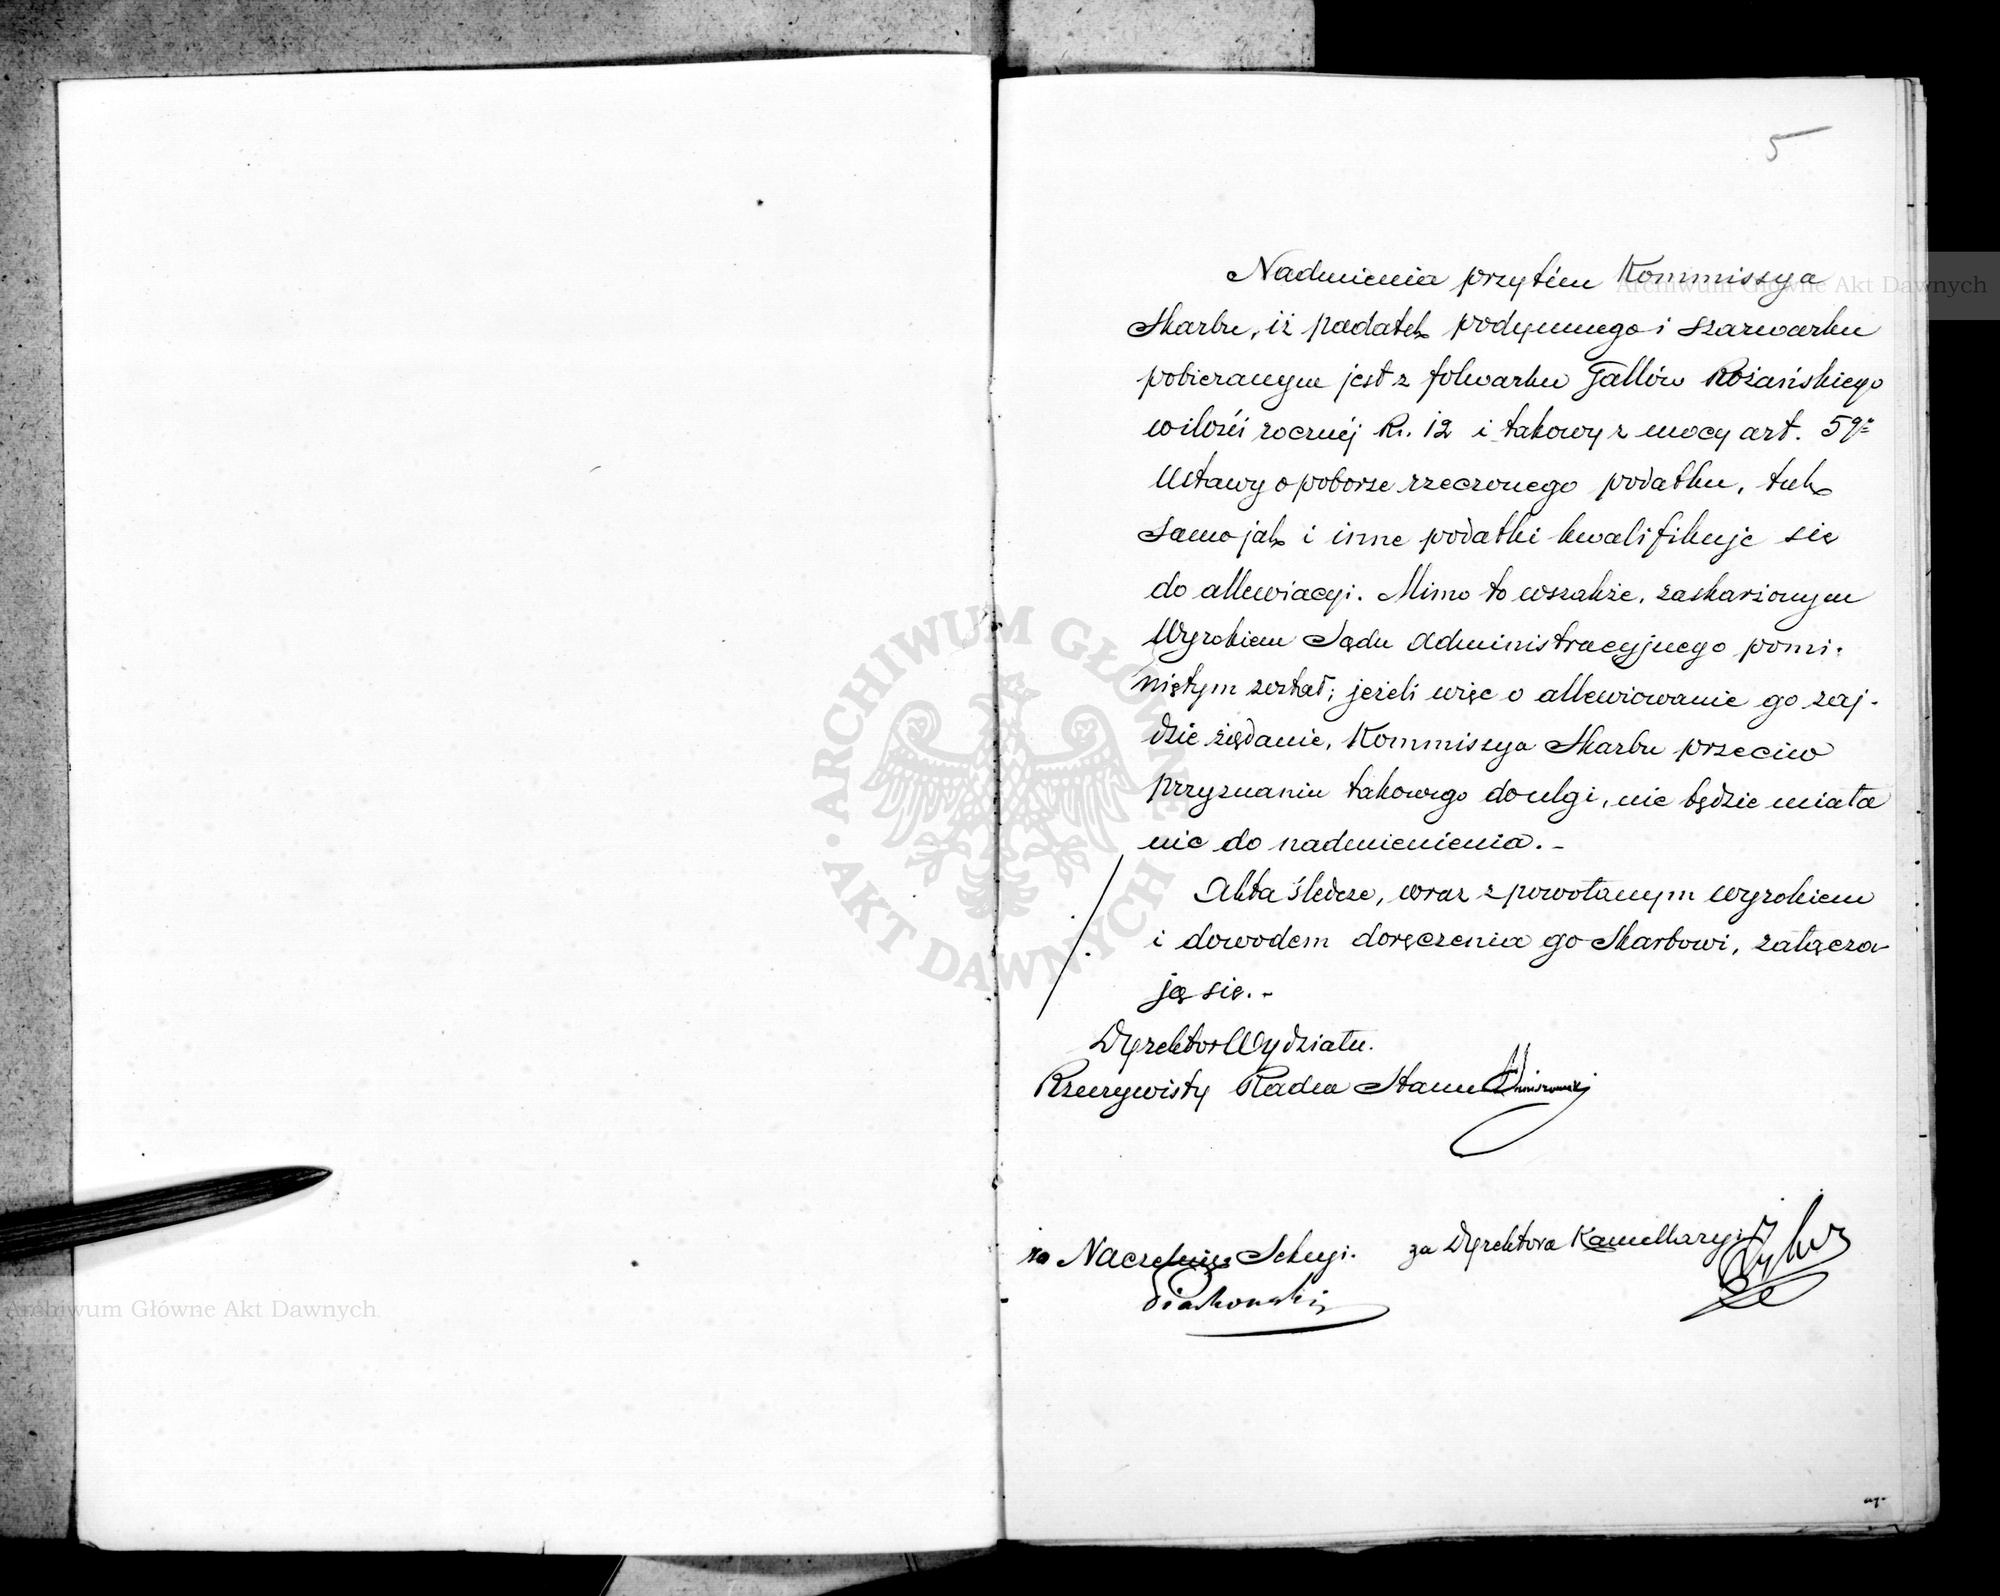 5
Nadmienia przytém Kommissya
Skarbu, iż podatek podymnego i szarwarku
pobieranym jest z folwarku Gallów Rożańskiego
w ilości rocznéj Rs. 12 i takowy z mocy art. 59º
Ustawy o poborze rzeczonego podatku, tak
samo jak i inne podatki kwalifikuje się
do allewiacyi. Mimo to wszakże, zaskarżonym
Wyrokiem Sądu Administracyjnego pomi-
niętym został; jeżeli więc o allewiowanie go zaj-
dzie żądanie, Kommissya Skarbu przeciw
przyznaniu takowego do ulgi, nie będzie miała
nic do nadmienienia. -
Akta śledcze, wraz z powołanym wyrokiem
i dowodem doręczenia go Skarbowi, załącza-
ją się. -
Dyrektor Wydziału.
Rzeczywisty Radca Stanu
za Naczelnika Sekcyi. za Dyrektora Kancellaryi
Piaskowski
Archiwum Główne Akt Dawnych
Archiwum Główne Akt Dawnych
ARCHIWUM GŁÓWNE AKT DAWNYCH